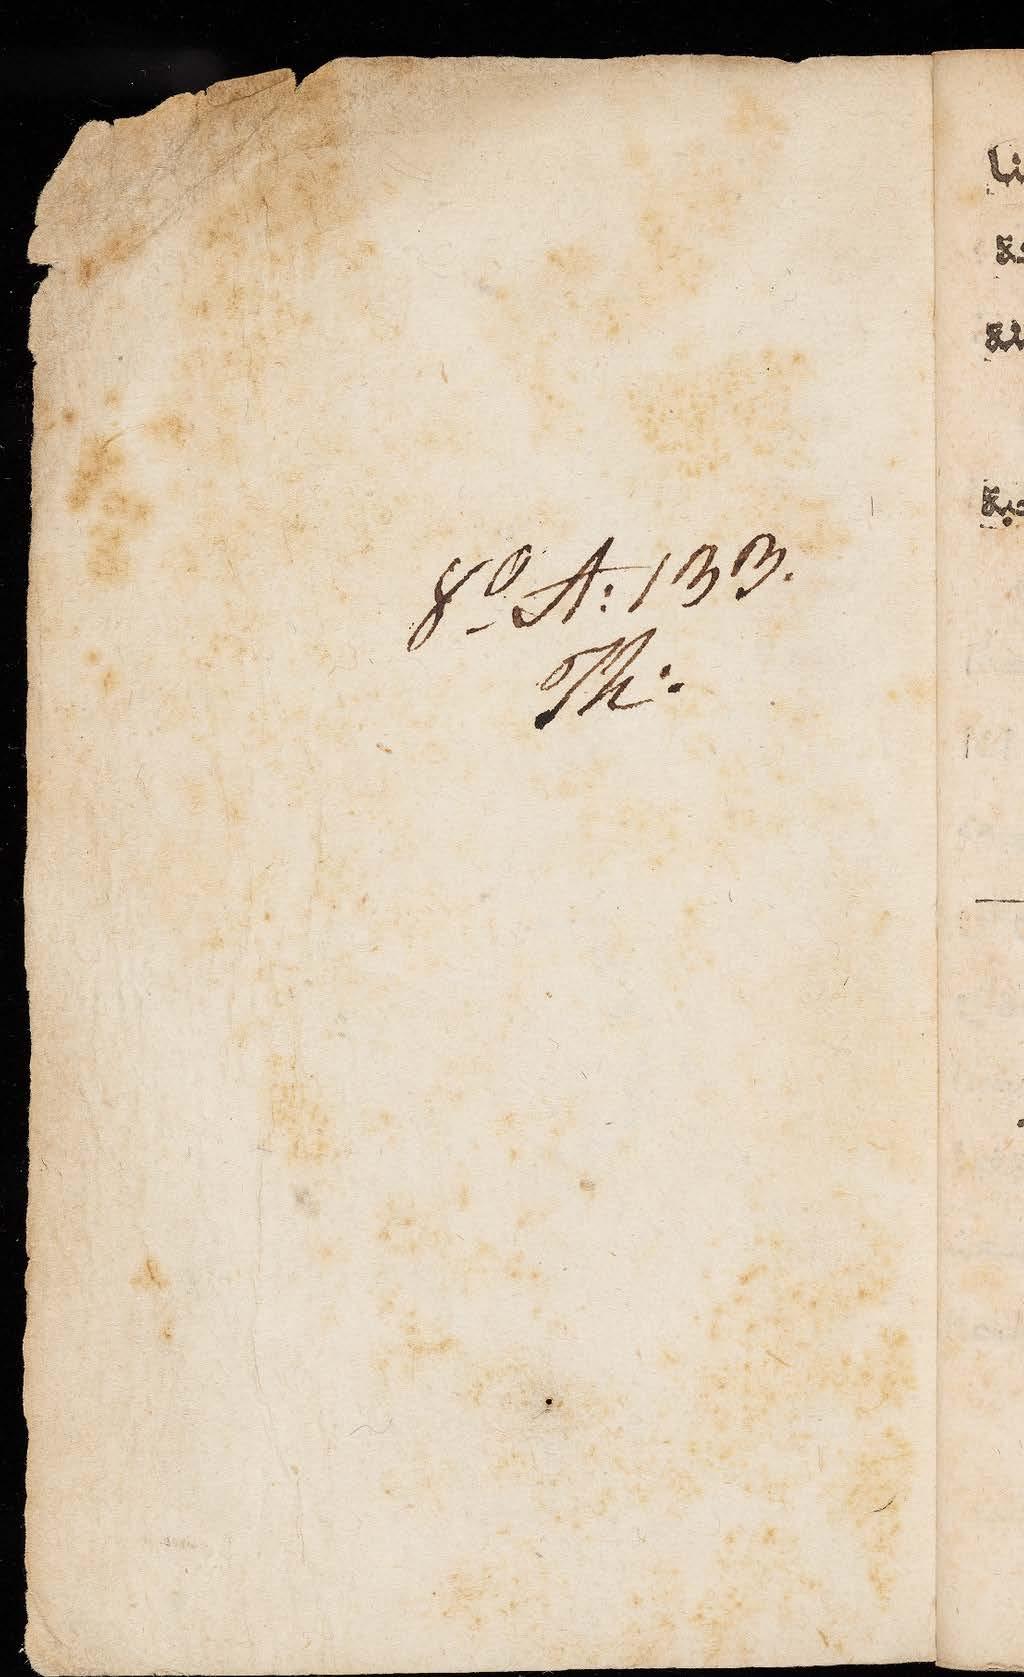 8º A: 133.
Th: